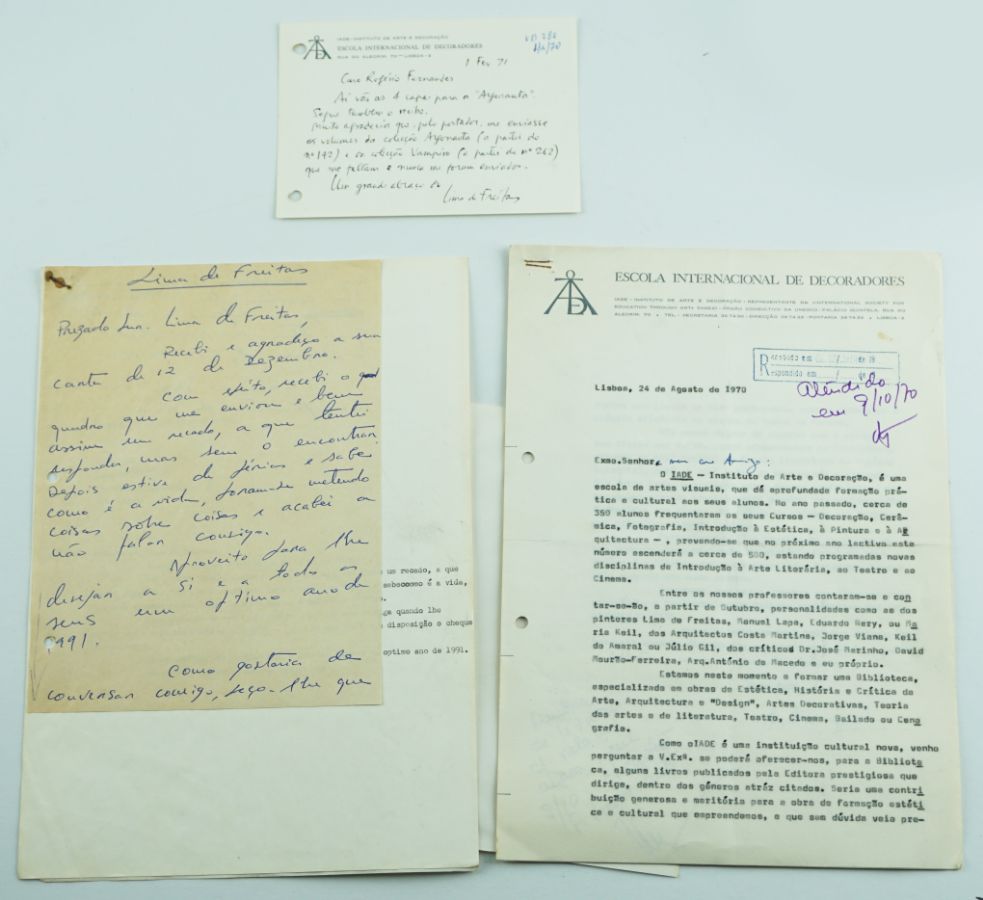 IADE - INSTITUTO DE ARTE E DECORAÇÃO
ESCOLA INTERNACIONAL DE DECORADORES
RUA DO ALECRIM, 70 — LISBOA-2
1 Fev. 71
Caro Rogério Fernandes
Aí vão as 4 capas para a "Argonauta".
Segue também o recibo.
Muito agradecia que, pelo portador, me enviasse
os volumes da colecção Argonauta (a partir do
nº 142) e da colecção Vampiro (a partir do nº 262)
que me faltam e nunca me foram enviados.
Um grande abraço do
Lima de Freitas
Lima de Freitas
Prezado Snr. Lima de Freitas,
Recebi e agradeço a sua
carta de 12 de Dezembro.
Com efeito, recebi o
quadro que me enviou e bem
assim um recado, a que tentei
responder, mas sem o encontrar.
Depois estive de férias e sabe
como é a vida, foram-se metendo
coisas sobre coisas e acabei a
não falar consigo.
Aproveito para lhe
desejar a si e a todos os
seus um optimo ano de
1991.
Como gostaria de
conversar consigo, peço-lhe que
um recado, a que
sabecomo é a vida,
quando lhe
disposição o cheque
optimo ano de 1991.
ESCOLA INTERNACIONAL DE DECORADORES
IADE - INSTITUTO DE ARTE E DECORAÇÃO - REPRESENTANTE DA INTERNATIONAL SOCIETY FOR
EDUCATION THROUGH ART (INSEA) - ÓRGÃO CONSULTIVO DA UNESCO - PALÁCIO QUINTELA, RUA DO
ALECRIM, 70 • TEL. - SECRETARIA 36 74 30 - DIRECÇÃO 36 74 32 - PORTARIA 36 78 36 • LISBOA-2
Recebido em
Respondido em
Lisboa, 24 de Agosto de 1970
Atendido
em 9/10/70
Exmo.Senhor e meu caro Amigo:
O IADE — Instituto de Arte e Decoração, é uma
escola de artes visuais, que dá aprofundada formação prá-
tica e cultural aos seus alunos. No ano passado, cerca de
350 alunos frequentaram os seus Cursos — Decoração, Cerâ-
mica, Fotografia, Introdução à Estética, à Pintura e à Ar
quitectura — , prevendo-se que no próximo ano lectivo este
número ascenderá a cerca de 500, estando programadas novas
disciplinas de Introdução à Arte Literária, ao Teatro e ao
Cinema.
Entre os nossos professores contaram-se e con
tar-se-ão, a partir de Outubro, personalidades como as dos
pintores Lima de Freitas, Manuel Lapa, Eduardo Nery, ou Ma
ria Keil, dos Arquitectos Costa Martins, Jorge Viana, Keil
do Amaral ou Júlio Gil, dos críticos Dr.José Marinho, David
Mourão-Ferreira, Arq.António de Macedo e eu próprio.
Estamos neste momento a formar uma Biblioteca,
especializada em obras de Estética, História e Crítica de
Arte, Arquitectura e "Design", Artes Decorativas, Teoria
das artes e de literatura, Teatro, Cinema, Bailado ou Ceno
grafia.
Como oIADE é uma instituição cultural nova, venho
perguntar a V.Exª. se poderá oferecer-nos, para a Bibliote
ca, alguns livros publicados pela Editora prestigiosa que
dirige, dentro dos géneros atráz citados. Seria uma contri
buição generosa e meritória para a obra de formação estéti
ca e cultural que empreendemos, e que sem dúvida veio pre-